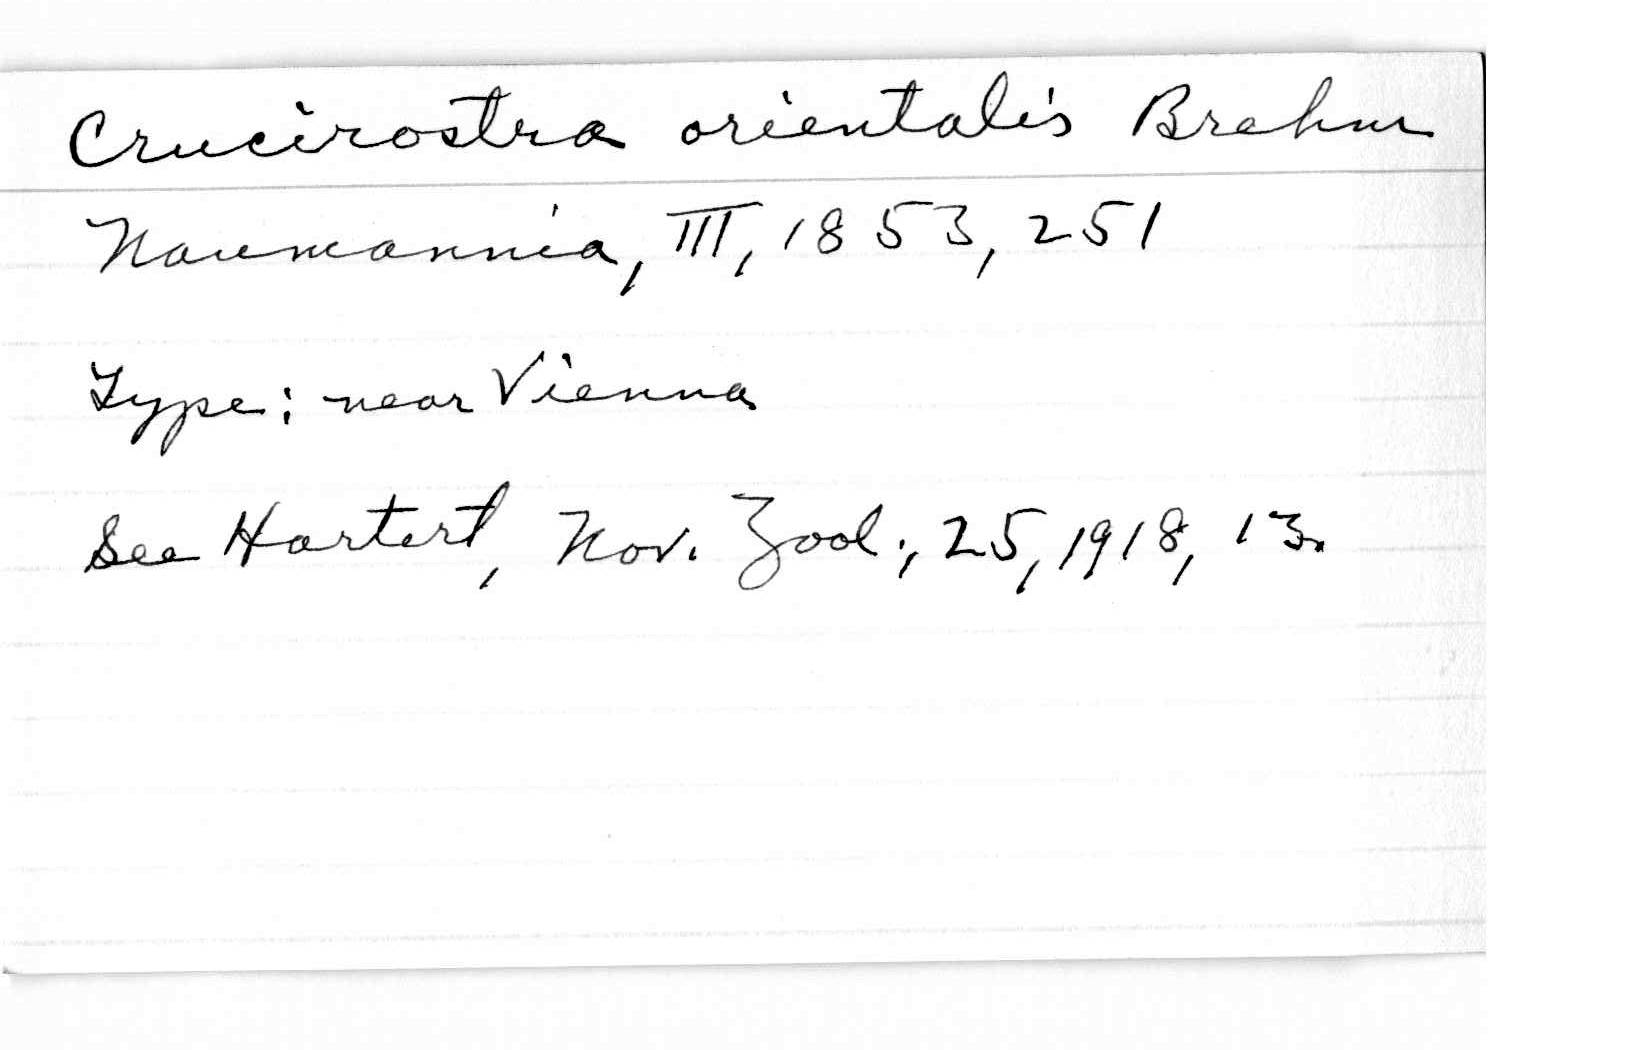 Crucirostra orientalis Brehm
Naumannia, III, 1853, 251
Type: near Vienna
See Hartert, Nov. Zool., 25, 1918, 13.